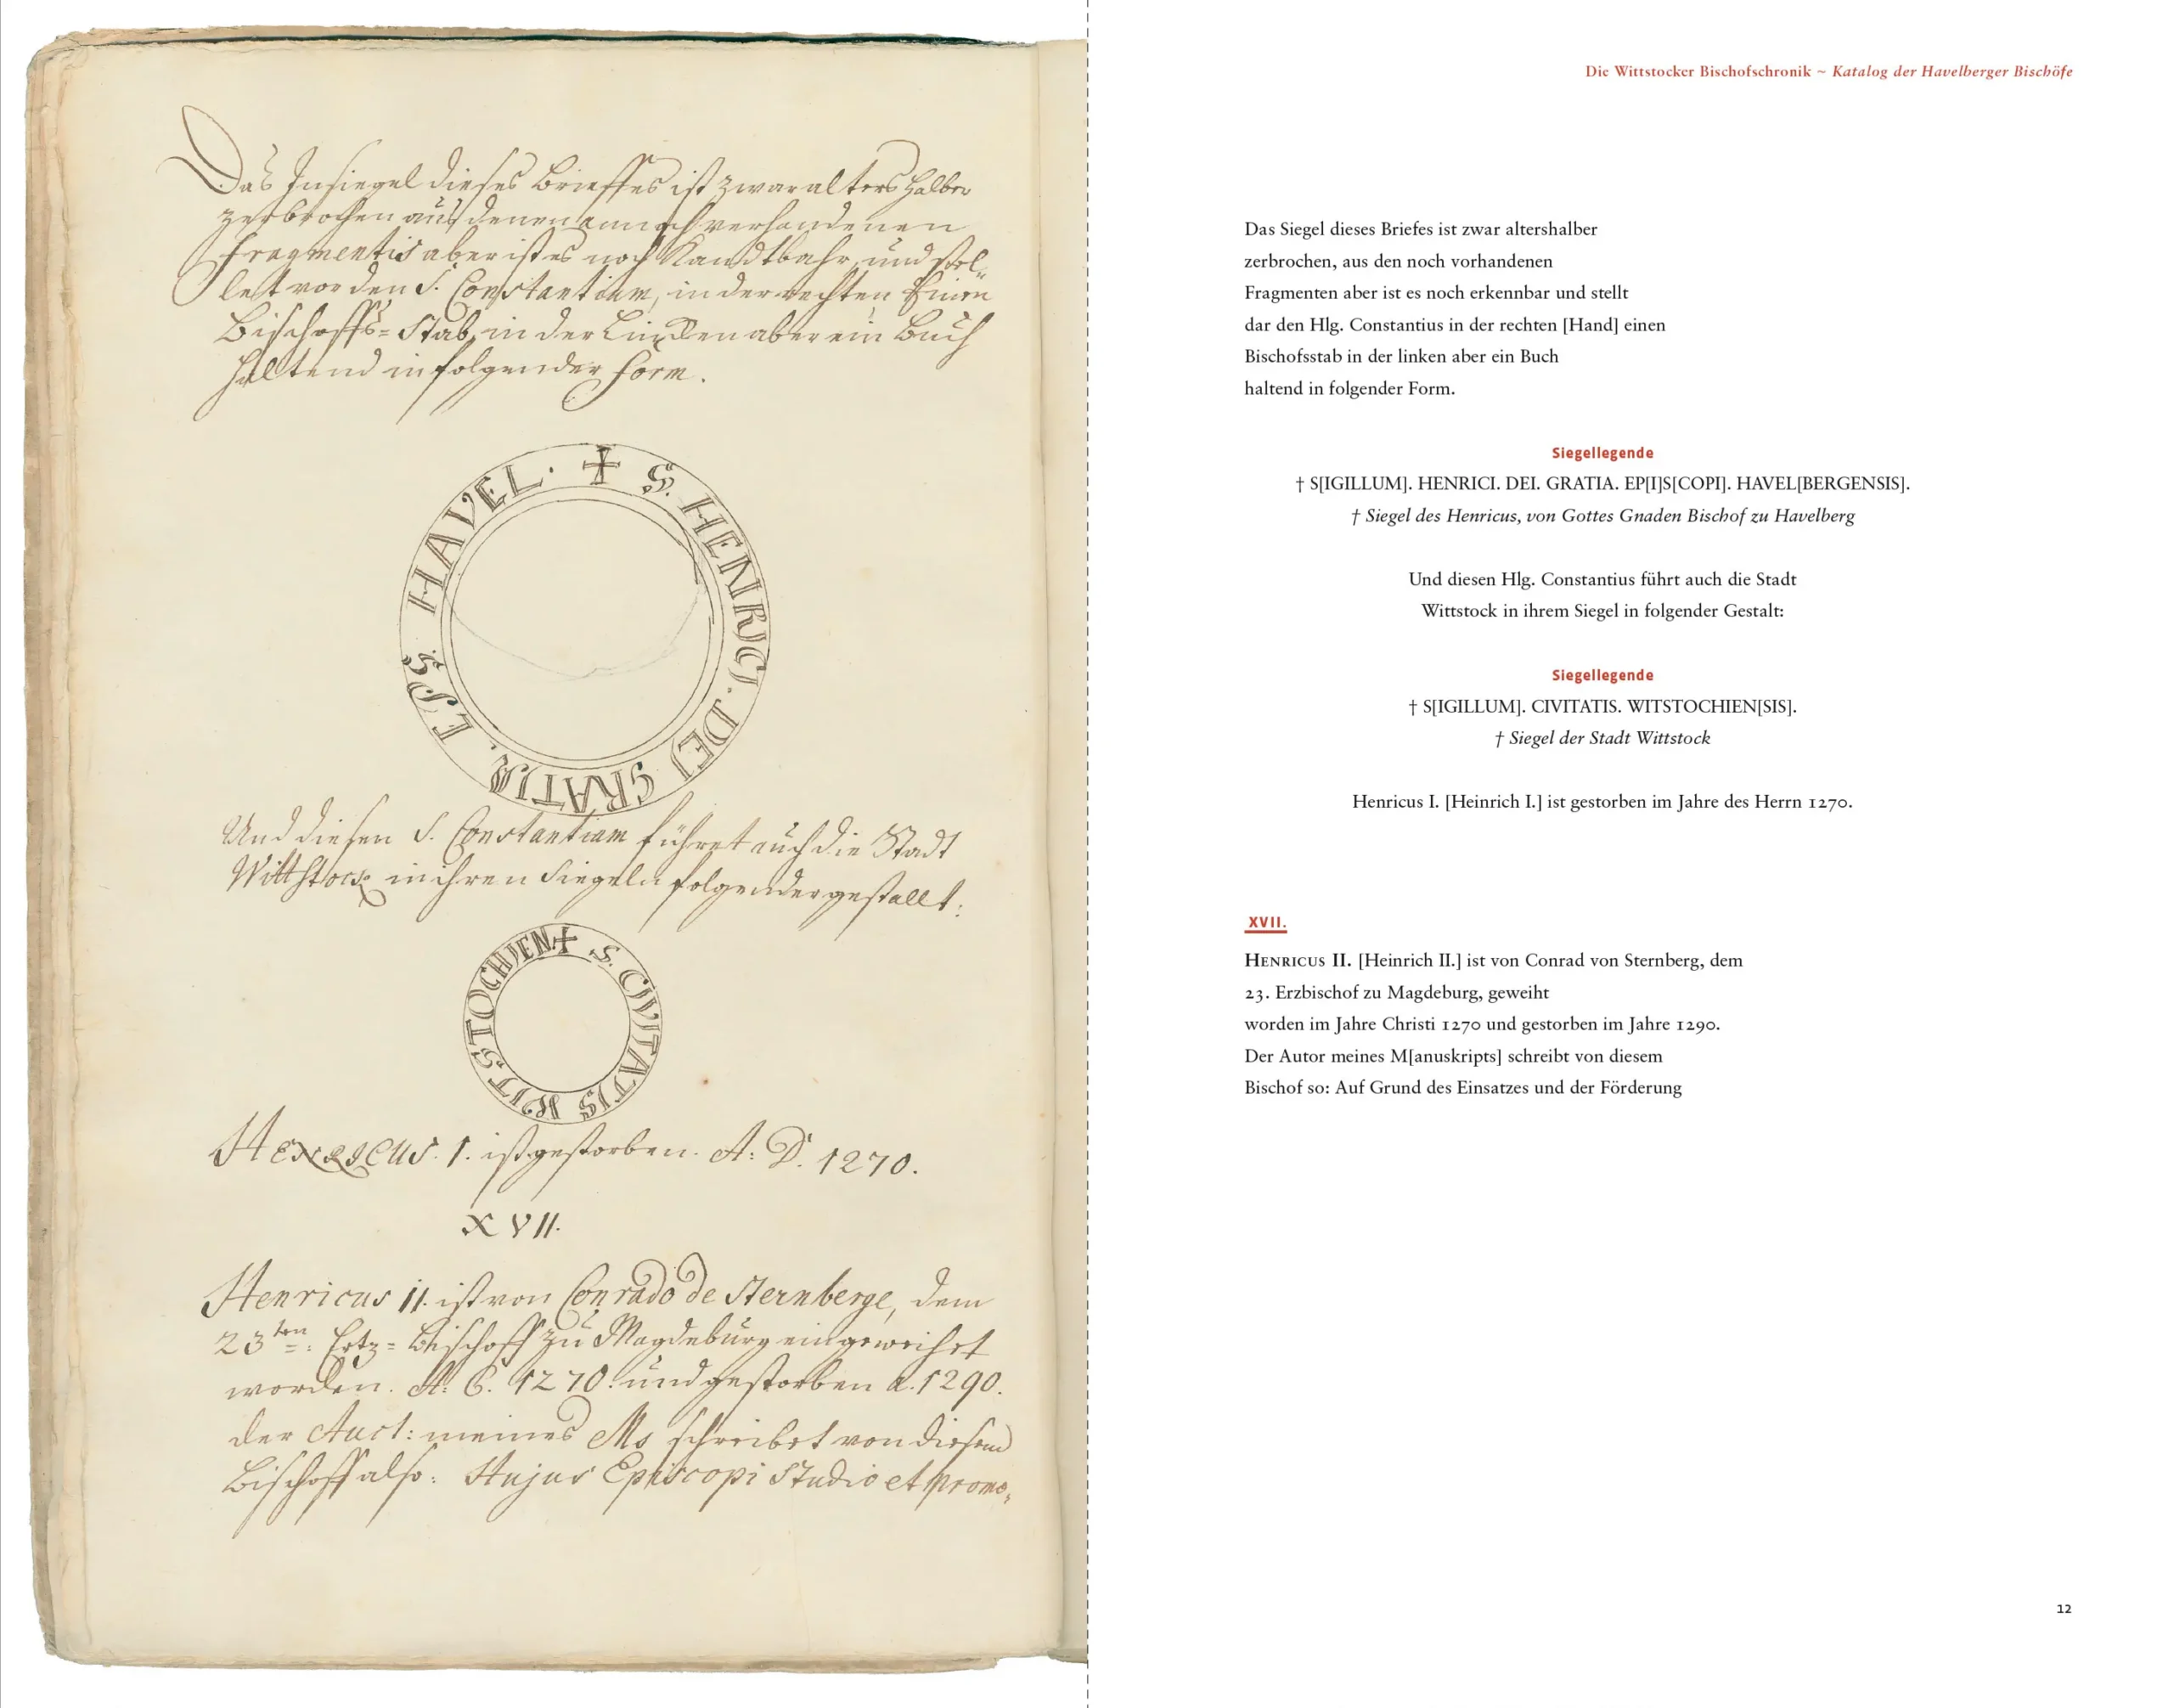 Das Insiegel dieses Brieffes ist zwar alters halber
zerbrochen aus denen annoch verhandenen
Fragmentis aber ist es noch Kandtbahr, und stel„
let vor den S. Constantium, in der rechten Einen
Bischoffs=Stab, in der Lincken aber ein Buch
haltend in folgender Form.
✝ S. HENRICI. DEI GRATIA. EPS. HAVEL.
Und diesen S. Constantium führet auch die Stadt
Wittstock in ihren Siegeln folgender gestallt:
✝ S. CIVITATIS WITSTOCHIEN
Henricus. I. ist gestorben. A: D. 1270.
XVII.
Henricus II. ist von Conrado de Sternberge, dem
23ten: Ertz=Bischoff zu Magdeburg eingeweihet
worden. A: C. 1270. und gestorben a. 1290.
der Auct: meines Ms schreibet von diesem
Bischoff also: Hujus Episcopi studio et promo„
Die Wittstocker Bischofschronik ~ Katalog der Havelberger Bischöfe
Das Siegel dieses Briefes ist zwar altershalber
zerbrochen, aus den noch vorhandenen
Fragmenten aber ist es noch erkennbar und stellt
dar den Hlg. Constantius in der rechten [Hand] einen
Bischofsstab in der linken aber ein Buch
haltend in folgender Form.
Siegellegende
† S[IGILLUM]. HENRICI. DEI. GRATIA. EP[I]S[COPI]. HAVEL[BERGENSIS].
† Siegel des Henricus, von Gottes Gnaden Bischof zu Havelberg
Und diesen Hlg. Constantius führt auch die Stadt
Wittstock in ihrem Siegel in folgender Gestalt:
Siegellegende
† S[IGILLUM]. CIVITATIS. WITSTOCHIEN[SIS].
† Siegel der Stadt Wittstock
Henricus I. [Heinrich I.] ist gestorben im Jahre des Herrn 1270.
XVII.
Henricus II. [Heinrich II.] ist von Conrad von Sternberg, dem
23. Erzbischof zu Magdeburg, geweiht
worden im Jahre Christi 1270 und gestorben im Jahre 1290.
Der Autor meines M[anuskripts] schreibt von diesem
Bischof so: Auf Grund des Einsatzes und der Förderung
12